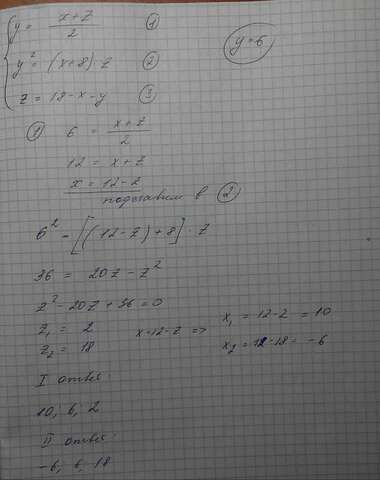 y = (x+z)/2 ①
y² = (x+8)·z ②
z = 18-x-y ③
y=6
① 6 = (x+z)/2
12 = x+z
x = 12-z
подставим в ②
6² = [(12-z)+8]·z
36 = 20z - z²
z² - 20z + 36 = 0
z₁ = 2
z₂ = 18
x=12-z => x₁ = 12-2 = 10
x₂ = 12-18 = -6
I ответ
10; 6; 2
II ответ:
-6; 6; 18